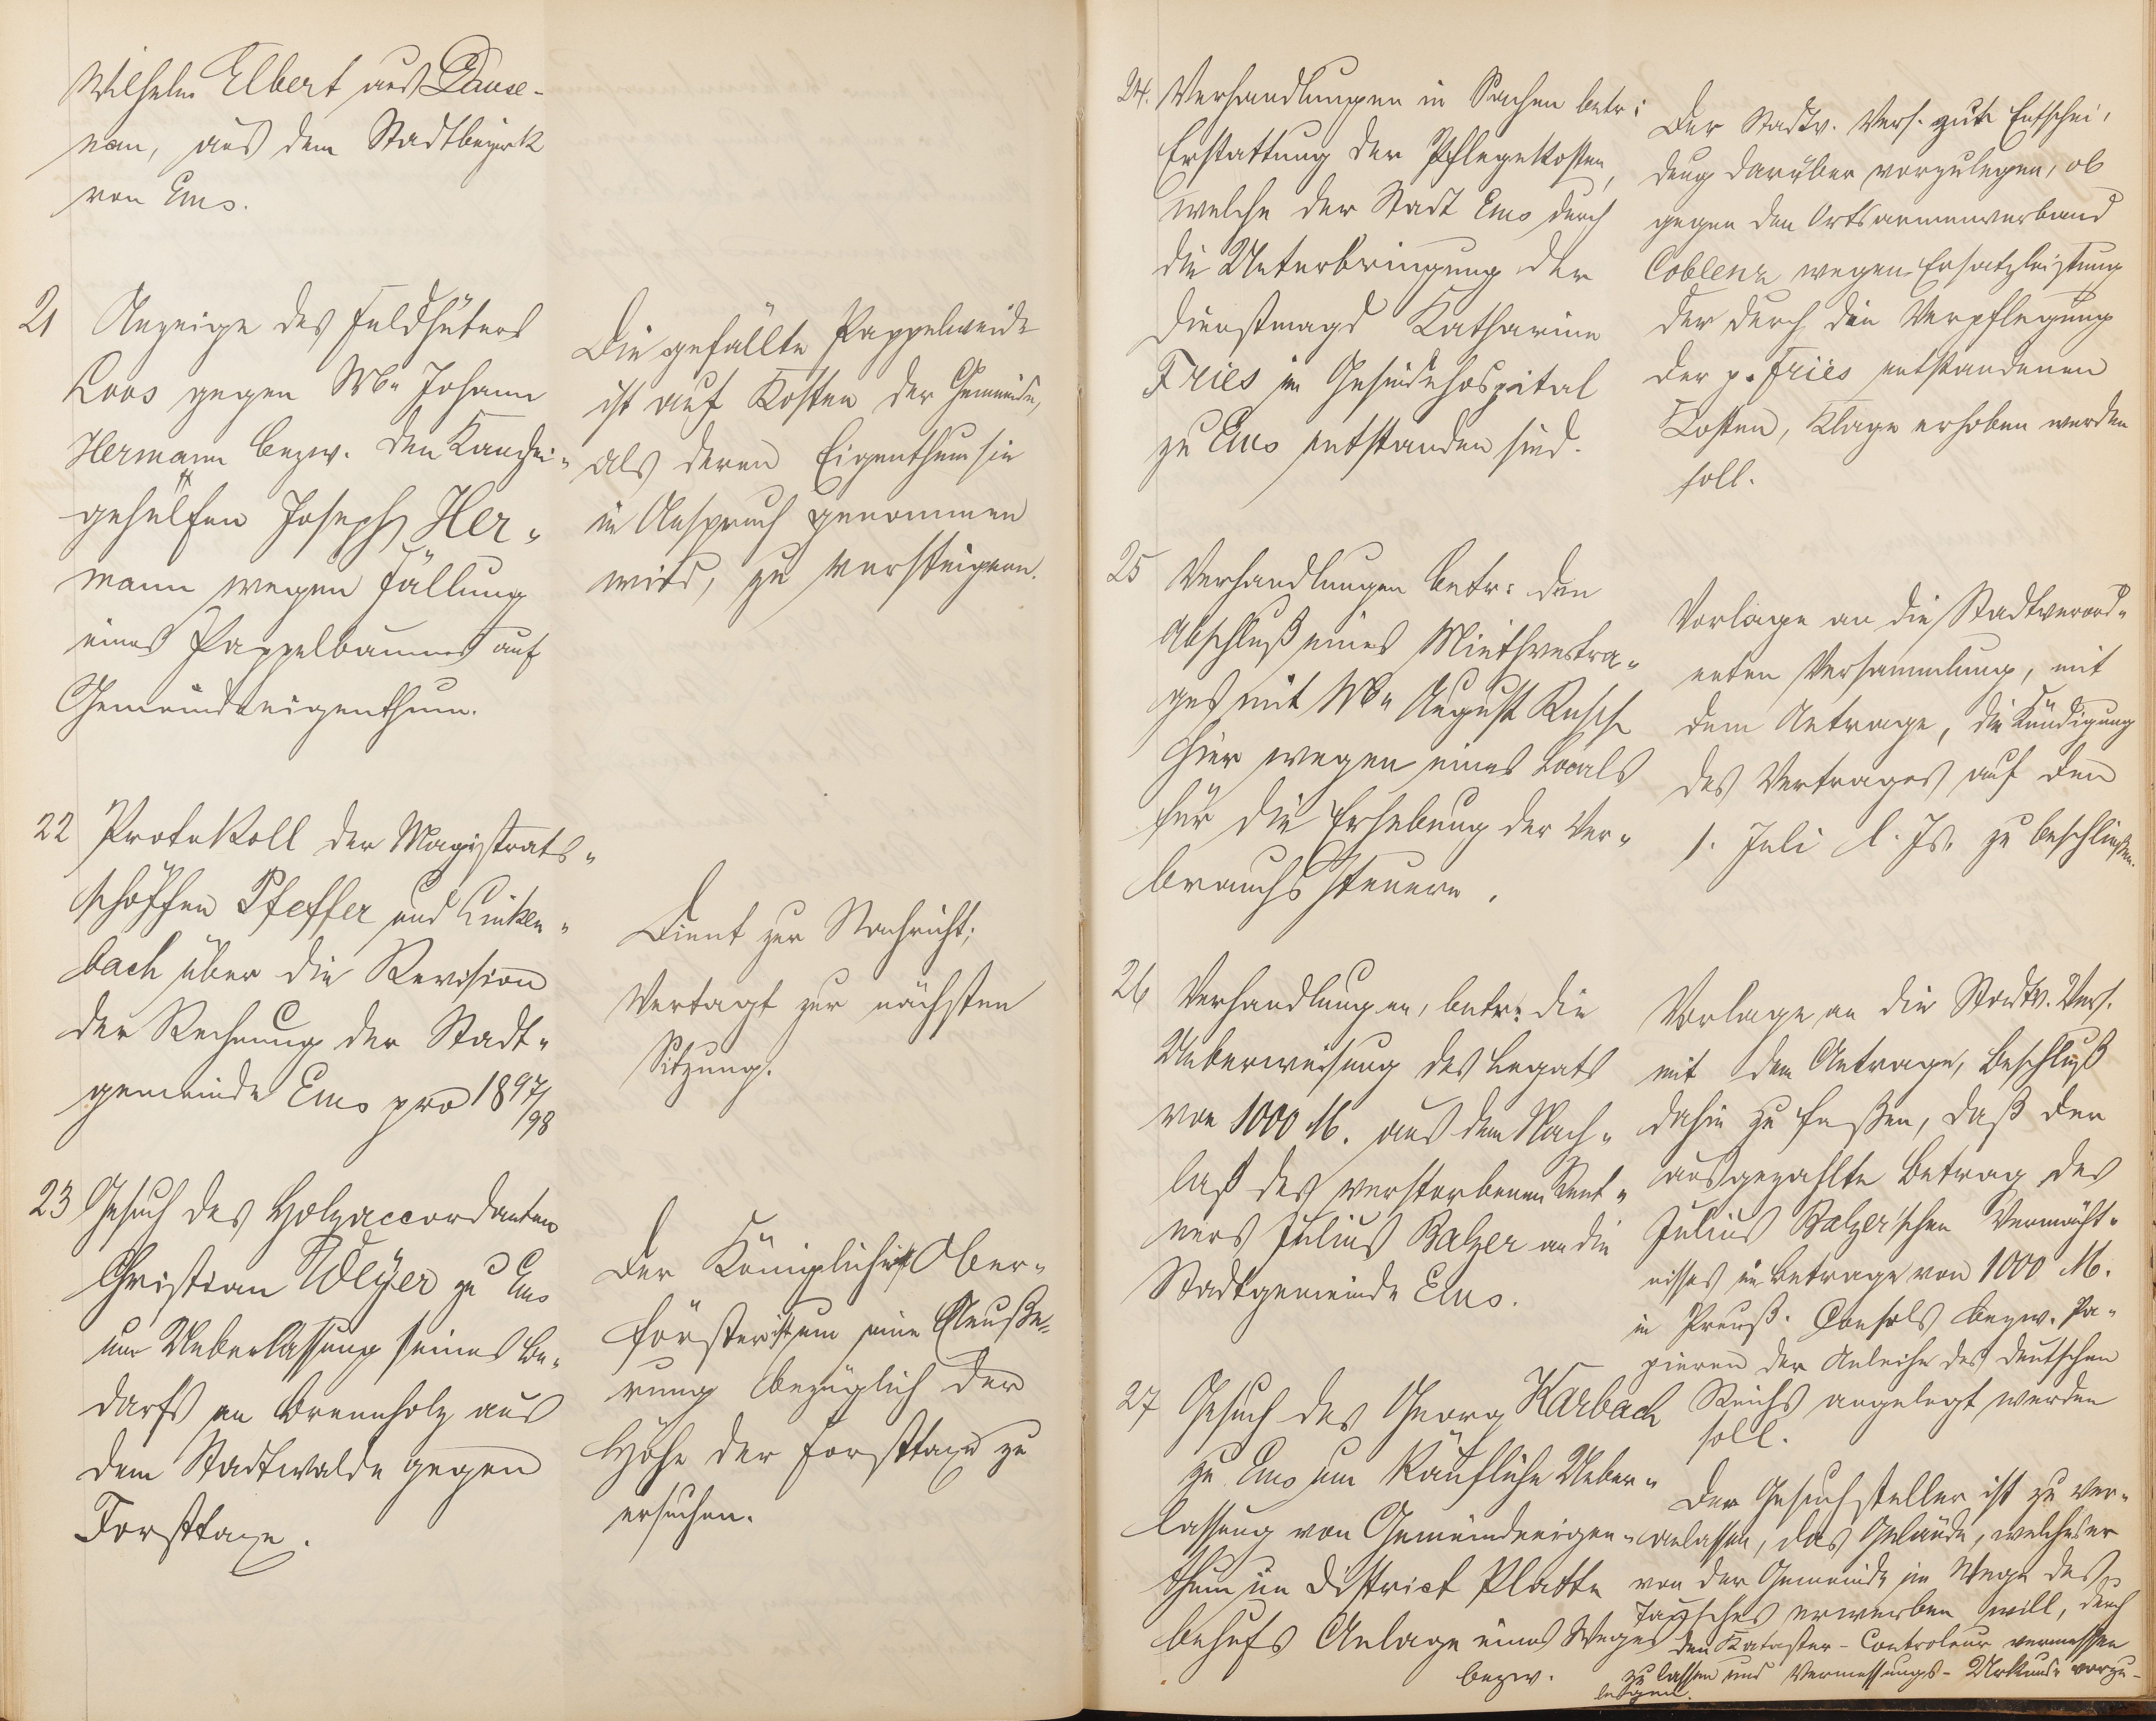 Wilhelm Elbert aus Dause-
nau, aus dem Stadtbezirk
von Ems.
21 Anzeige des Feldhüters
Loos gegen Wwe Johann
Hermann bezw. den Kanzlei-
gehülfen Joseph Her-
mann wegen Fällung
eines Pappelbaumes auf
Gemeindeeigenthum.
Die gefällte Pappelweide
ist auf Kosten der Gemeinde,
als deren Eigenthum sie
in Anspruch genommen
wird, zu versteigern.
22 Protokoll der Magistrats-
schöffen Pfeffer und Linken-
bach über die Revision
der Rechnung der Stadt-
gemeinde Ems pro 1897/98
Dient zur Nachricht;
Vertagt zur nächsten
Sitzung.
23 Gesuch des Holzaccordanten
Christian Weyer zu Ems
um Ueberlassung seines Be-
darfs an Brennholz aus
dem Stadtwalde gegen
Forsttaxe.
Der Königliche Ober-
förster ist um eine Aeuße-
rung bezüglich der
Höhe der Forsttaxe zu
ersuchen.
24. Verhandlungen in Sachen betr:
Erstattung der Pflegekosten,
welche der Stadt Ems durch
die Unterbringung der
Dienstmagd Katharine
Fries im Gesindehospital
zu Ems entstanden sind.
Der Stadtv. Vers. zur Entschei-
dung darüber vorzulegen, ob
gegen den Ortsarmenverband
Coblenz wegen Ersatzleistung
der durch die Verpflegung
der p. Fries entstandenen
Kosten, Klage erhoben werden
soll.
25 Verhandlungen betr: den
Abschluß eines Miethvertra-
ges mit Wwe August Rusch
hier wegen eines Locals
für die Erhebung der Ver-
brauchssteuern.
Vorlage an die Stadtverord-
neten Versammlung, mit
dem Antrage, die Kündigung
des Vertrages auf den
1. Juli l. Js. zu beschließen.
26 Verhandlungen, betr: die
Ueberweisung des Legats
von 1000 M. aus dem Nach-
laß des verstorbenen Rent-
ners Julius Balzer an die
Stadtgemeinde Ems.
Vorlage an die Stadtv. Vers.
mit dem Antrage, Beschluß
dahin zu faßen, daß der
ausgezahlte Betrag des
Julius Balzer'schen Vermächt-
nisses im Betrage von 1000 M.
in Preuß. Consols bezw. Pa-
pieren der Anleihe des deutschen
Reichs angelegt werden
soll.
27 Gesuch des Georg Karbach
zu Ems um käufliche Ueber-
lassung von Gemeindeeigen-
thum im District Platte
behufs Anlage eines Weges
bezw.
Der Gesuchsteller ist zu ver-
anlassen, das Gelände, welches er
von der Gemeinde im Wege des
Tausches erwerben will, durch
den Kataster-Controleur vermessen
zu lassen und Vermessungs-Urkunde vorzu-
legen.